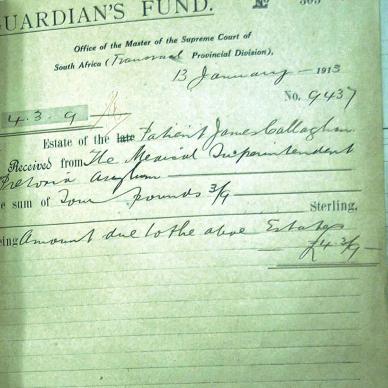 GUARDIAN'S FUND. E 305
Office of the Master of the Supreme Court of
South Africa (Transvaal Provincial Division),
13 January 1913
No. 9437
4 - 3 - 9
Estate of the late Patient James Callaghan
Received from The Medical Superintendent
Pretoria Asylum
e sum of Four pounds 3/9
Sterling.
eing Amount due to the above Estate
£4 3/9